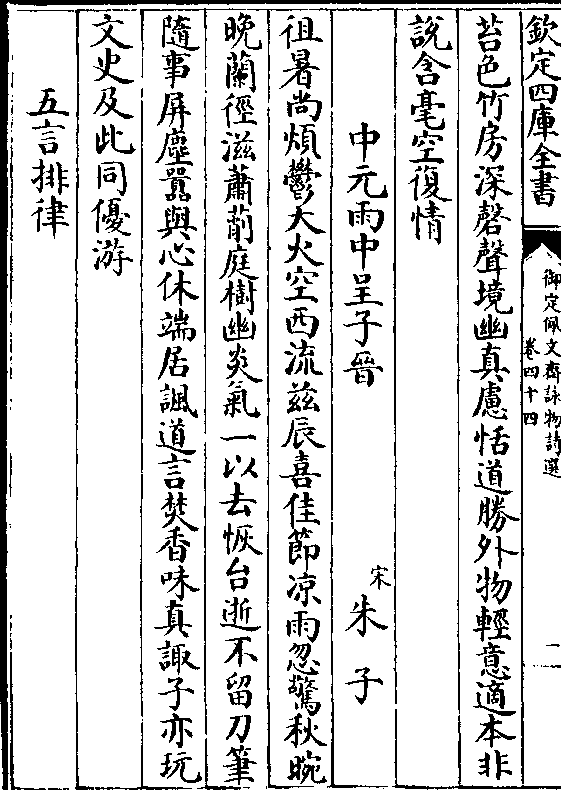 欽定四庫全書
御定佩文齋詠物詩選
卷四十四
二
苔色竹房深磬聲境幽真慮恬道勝外物輕意適本非
說含毫空復情
中元雨中呈子晉 宋 朱子
徂暑尚煩鬱大火空西流茲辰喜佳節凉雨忽驚秋晼
晚蘭徑滋蕭萷庭樹幽炎氣一以去恢台逝不留刀筆
隨事屏塵囂與心休端居諷道言焚香味真諏子亦玩
文史及此同優游
五言排律